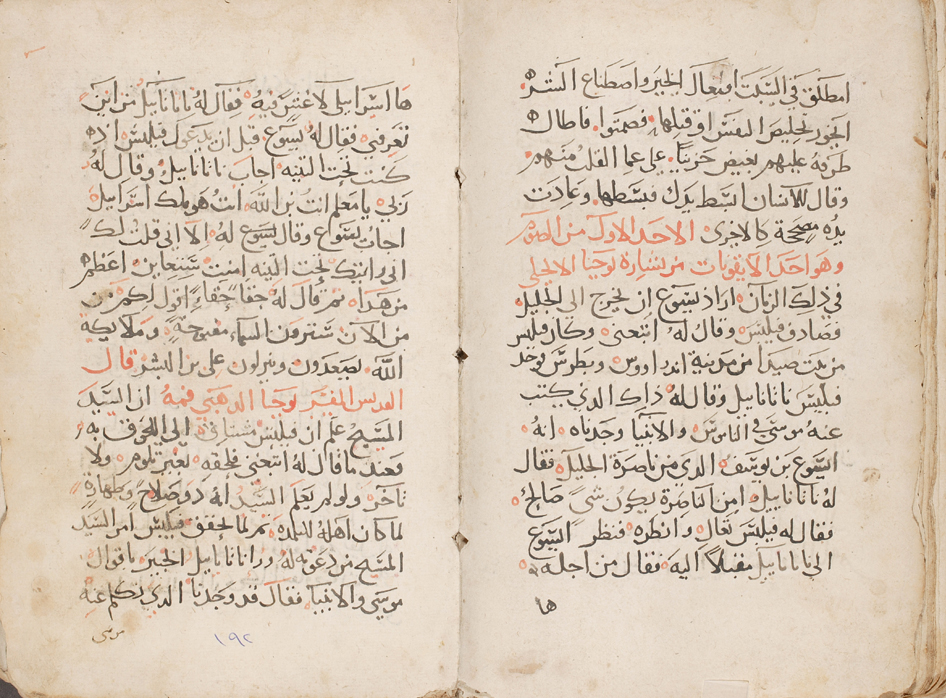 امطلق في السبت افعال الخير واصطناع الشر
الجور تخليص النفس او قتلها فصمتوا فاطال
طرفه عليهم بغيض حزينًا علي عما القلب منهم
وقال للانسان ابسط يدك فبسطها وعادت
يده مصححة كالاخرى الاحد الاول من الصوم
وهو احد الايقونات من بشارة يوحنا الانجيلي
في ذلك الزمان اراد يسوع ان يخرج الى الجليل
فصادف فيلبس وقال له اتبعني وكان فيلبس
من بيت صيدا من مدينة اندراووس وبطرس فوجد
فيلبس ناتاناييل وقال له ذاك الذي كتب
عنه موسى في الناموس والانبيا وجدناه انه
ايسوع بن يوسف الذي من ناصرة الجليل فقال
له ناتاناييل وامن الناصرة يكون شيً صالح
فقال له فيلبس تعال وانظره فنظر ايسوع
الى ناتاناييل مقبلاً اليه فقال من اجله
ها
ها اسراييلي لا غش فيه فقال له ناتاناييل من اين
تعرفني فقال له يسوع قبل ان يدعوك فيلبس اذ
كنت تحت التينه اجاب ناتاناييل وقال له
ربي يا معلم انت بن الله انت هو ملك اسراييل
اجاب يسوع وقال يسوع له الا اني قلت لك
اني رايتك تحت التينه امنت ستعاين اعظم
من هدا ثم قال له حقًا حقًا اقول لكم من
من الان سترون السماء مفتوحة وملايكة
الله يصعدون وينزلون على بن البشر قال
القديس المفسر يوحنا الدهبي فمه ان السيد
المسيح علم ان فيلبس مشتاق الي اللحوق به
فعند ما قال له اتبعني فلحقه بغير تلوم ولا
تاخر ولو لم يعلم السيد انه ذو صلاح وطهارة
لما كان اهله للتلمدة ثم لما تحقق فيلبس امر السيد
المسيح من دعوته له ورا ناتاناييل الخبير باقوال
موسى والانبيا فقال قد وجدنا الذي تكلم عنه
موسى
١٩٢